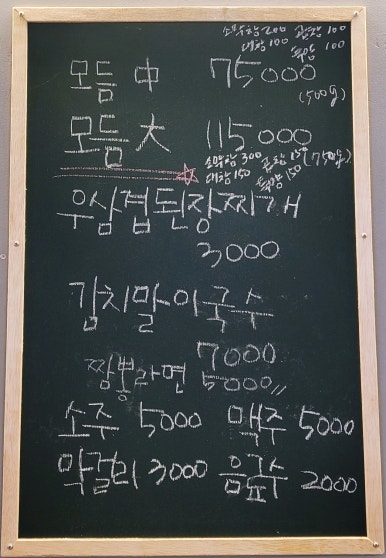 소막창 200 곱창 100
대창 100 특양 100
모듬 中 75000
(500g)
모듬 大 115000
소막창 300 곱창 150 (750g)
대창 150 특양 150
우삼겹된장찌개
3000
김치말이국수
7000
짬뽕라면 5000
소주 5000 맥주 5000
막걸리 3000 음료수 2000